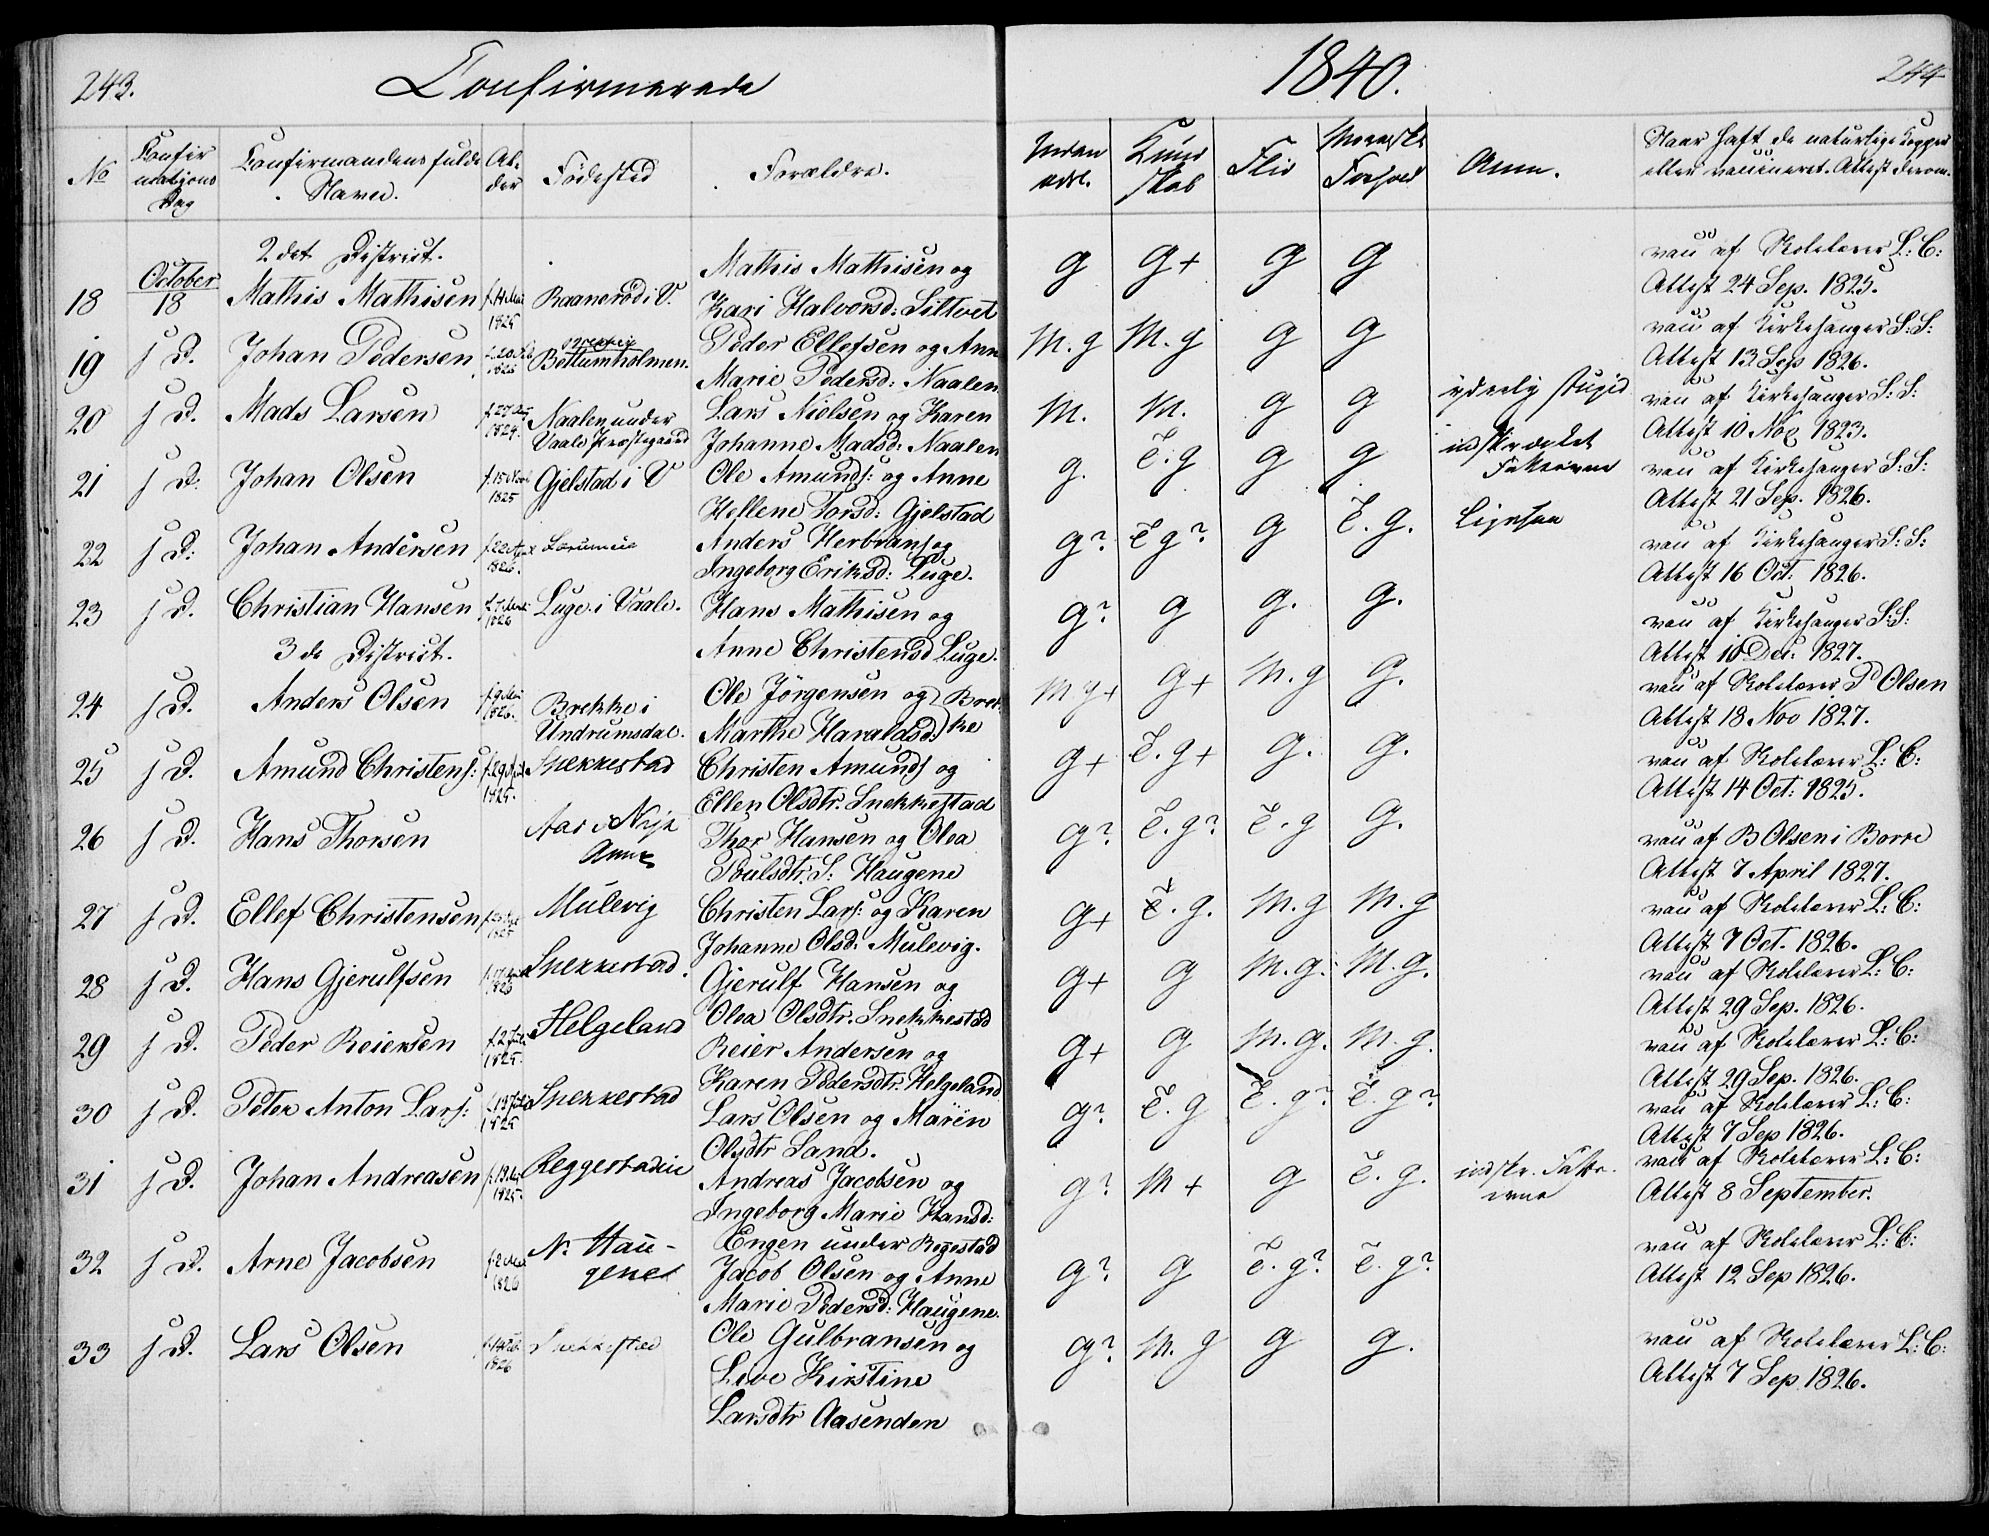 243.
Confirmerede
1840.
244
No
Confir
mations
Dag
Confirmandens fulde
Navn.
Al-
der
Födested
Forældre.
Kund
skab
Flid
Anm.
Naar haft de naturlige Kopper
eller vaccineret. Attest derom.
2det District.
18 October 18 Mathis Mathisen Raanerød i V. Mathis Mathisen og g g+ g g vacc af Skolelærer L: C:
1825 Kari Halvorsd: Siltvet Attest 24 Sep. 1825.
19 s D. Johan Pedersen Bettumholmen. Peder Ellefsen og Anne M. g M. g g g vacc af Kirkesanger S: S:
Marie Pedersd: Naalen Attest 13 Sep 1826.
20 s D. Mads Larsen 1824. Naalen under Lars Nielsen og Karen M. M. g g yderlig stupid vacc af Kirkesanger S: S:
Vaale Præstegaard Johanne Madsd: Naalen Attest 10 Nov 1823.
21 s D: Johan Olsen Gjelstad i V Ole Amunds: og Anne g. T. g g g indskrænket vacc af Kirkesanger S: S:
1825 Hellene Torsd: Gjelstad Attest 21 Sep. 1826.
22 s D: Johan Andersen Anders Herbrans og g? T g? g T. g. Ligesaa vacc af Kirkesanger S: S:
1826. Ingeborg Eriksd: Luge. Attest 16 Oct: 1826.
23 s D. Christian Hansen Luge i Vaale. Hans Mathisen og g? g g. g. vacc af Kirkesanger S: S:
1826 Anne Christensd Luge. Attest 10 Dec: 1827.
3de District.
24 s D. Anders Olsen 1826. Brekke i Ole Jörgensen og Brek- M g+ g+ M. g g. vacc af Skolelærer P Olsen
Undrumsdal. Marthe Haraldsd: ke Attest 18 Nov 1827.
25 s D. Amund Christens: Snekkestad Christen Amunds og g+ T. g+ g. g. vacc af Skolelærer L: C:
1825. Ellen Olsdtr. Snekkestad Attest 14 Oct: 1825.
26 s D. Hans Thorsen Thor Hansen og Olea g? T. g? T. g g. vacc af B Olsen i Borre
Poulsdtr. S: Haugene Attest 7 April 1827.
27 s D. Ellef Christensen Mulevig Christen Lars: og Karen g+ T. g. M. g M. g vacc af Skolelærer L: C:
Johanne Olsd: Mulevig. Attest 7 Oct. 1826.
28 s D. Hans Gjerulfsen Snekkestad. Gjerulf Hansen og g+ g M. g. M. g. vacc af Skolelærer L: C:
Olea Olsdtr. Snekkestad Attest 29 Sep. 1826.
29 s D. Peder Reiersen Helgeland Reier Andersen og g+ g M. g. M. g. vacc af Skolelærer L: C:
1825. Karen Pedersdtr. Helgeland Attest 29 Sep. 1826.
30 s D. Peter Anton Lars: Snekkestad Lars Olsen og Maren g? T. g T. g? T. g? vacc af Skolelærer L: C:
1825 Olsdtr Sand. Attest 7 Sep 1826.
31 s D. Johan Andreasen Andreas Jacobsen og g? M+ g T. g. vacc af Skolelærer L: C:
1825. Ingeborg Marie Hansd: Attest 8 September.
Engen under Reggestad
32 s D. Arne Jacobsen N. Hau- Jacob Olsen og Anne g? g T. g? T. g? vacc af Skolelærer L: C:
1826 gene Marie Pedersd: Haugene. Attest 12 Sep 1826.
33 s D. Lars Olsen Snekkestad Ole Gulbransen og g? M. g g g. vacc af Skolelærer L: C:
1826 Live Kirstine Attest 7 Sep 1826.
Larsdtr Aasenden